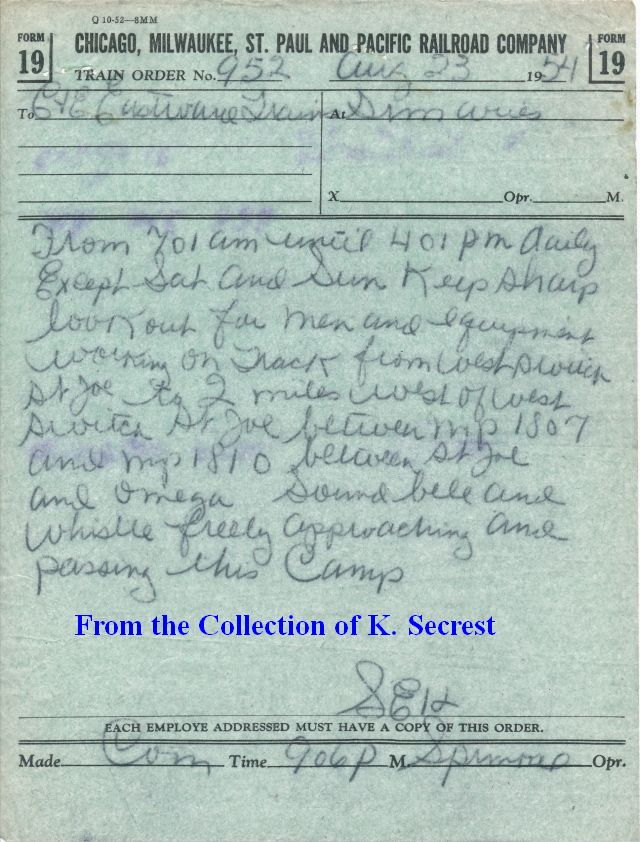 Q 10-52—8MM
FORM 19
CHICAGO, MILWAUKEE, ST. PAUL AND PACIFIC RAILROAD COMPANY
FORM 19
TRAIN ORDER No. 952 Aug 23 1954
To C&E Eastward Trains At
X Opr. M.
From 701 am until 401 pm daily
Except Sat and Sun Keep sharp
lookout for men and equipment
working on track from west switch
St Joe to 2 miles west of west
switch St Joe between mp 1807
and mp 1810 between St Joe
and Omega Sound bell and
whistle freely approaching and
passing this Camp
From the Collection of K. Secrest
SEH
EACH EMPLOYE ADDRESSED MUST HAVE A COPY OF THIS ORDER.
Made Com Time 906 P M. Opr.